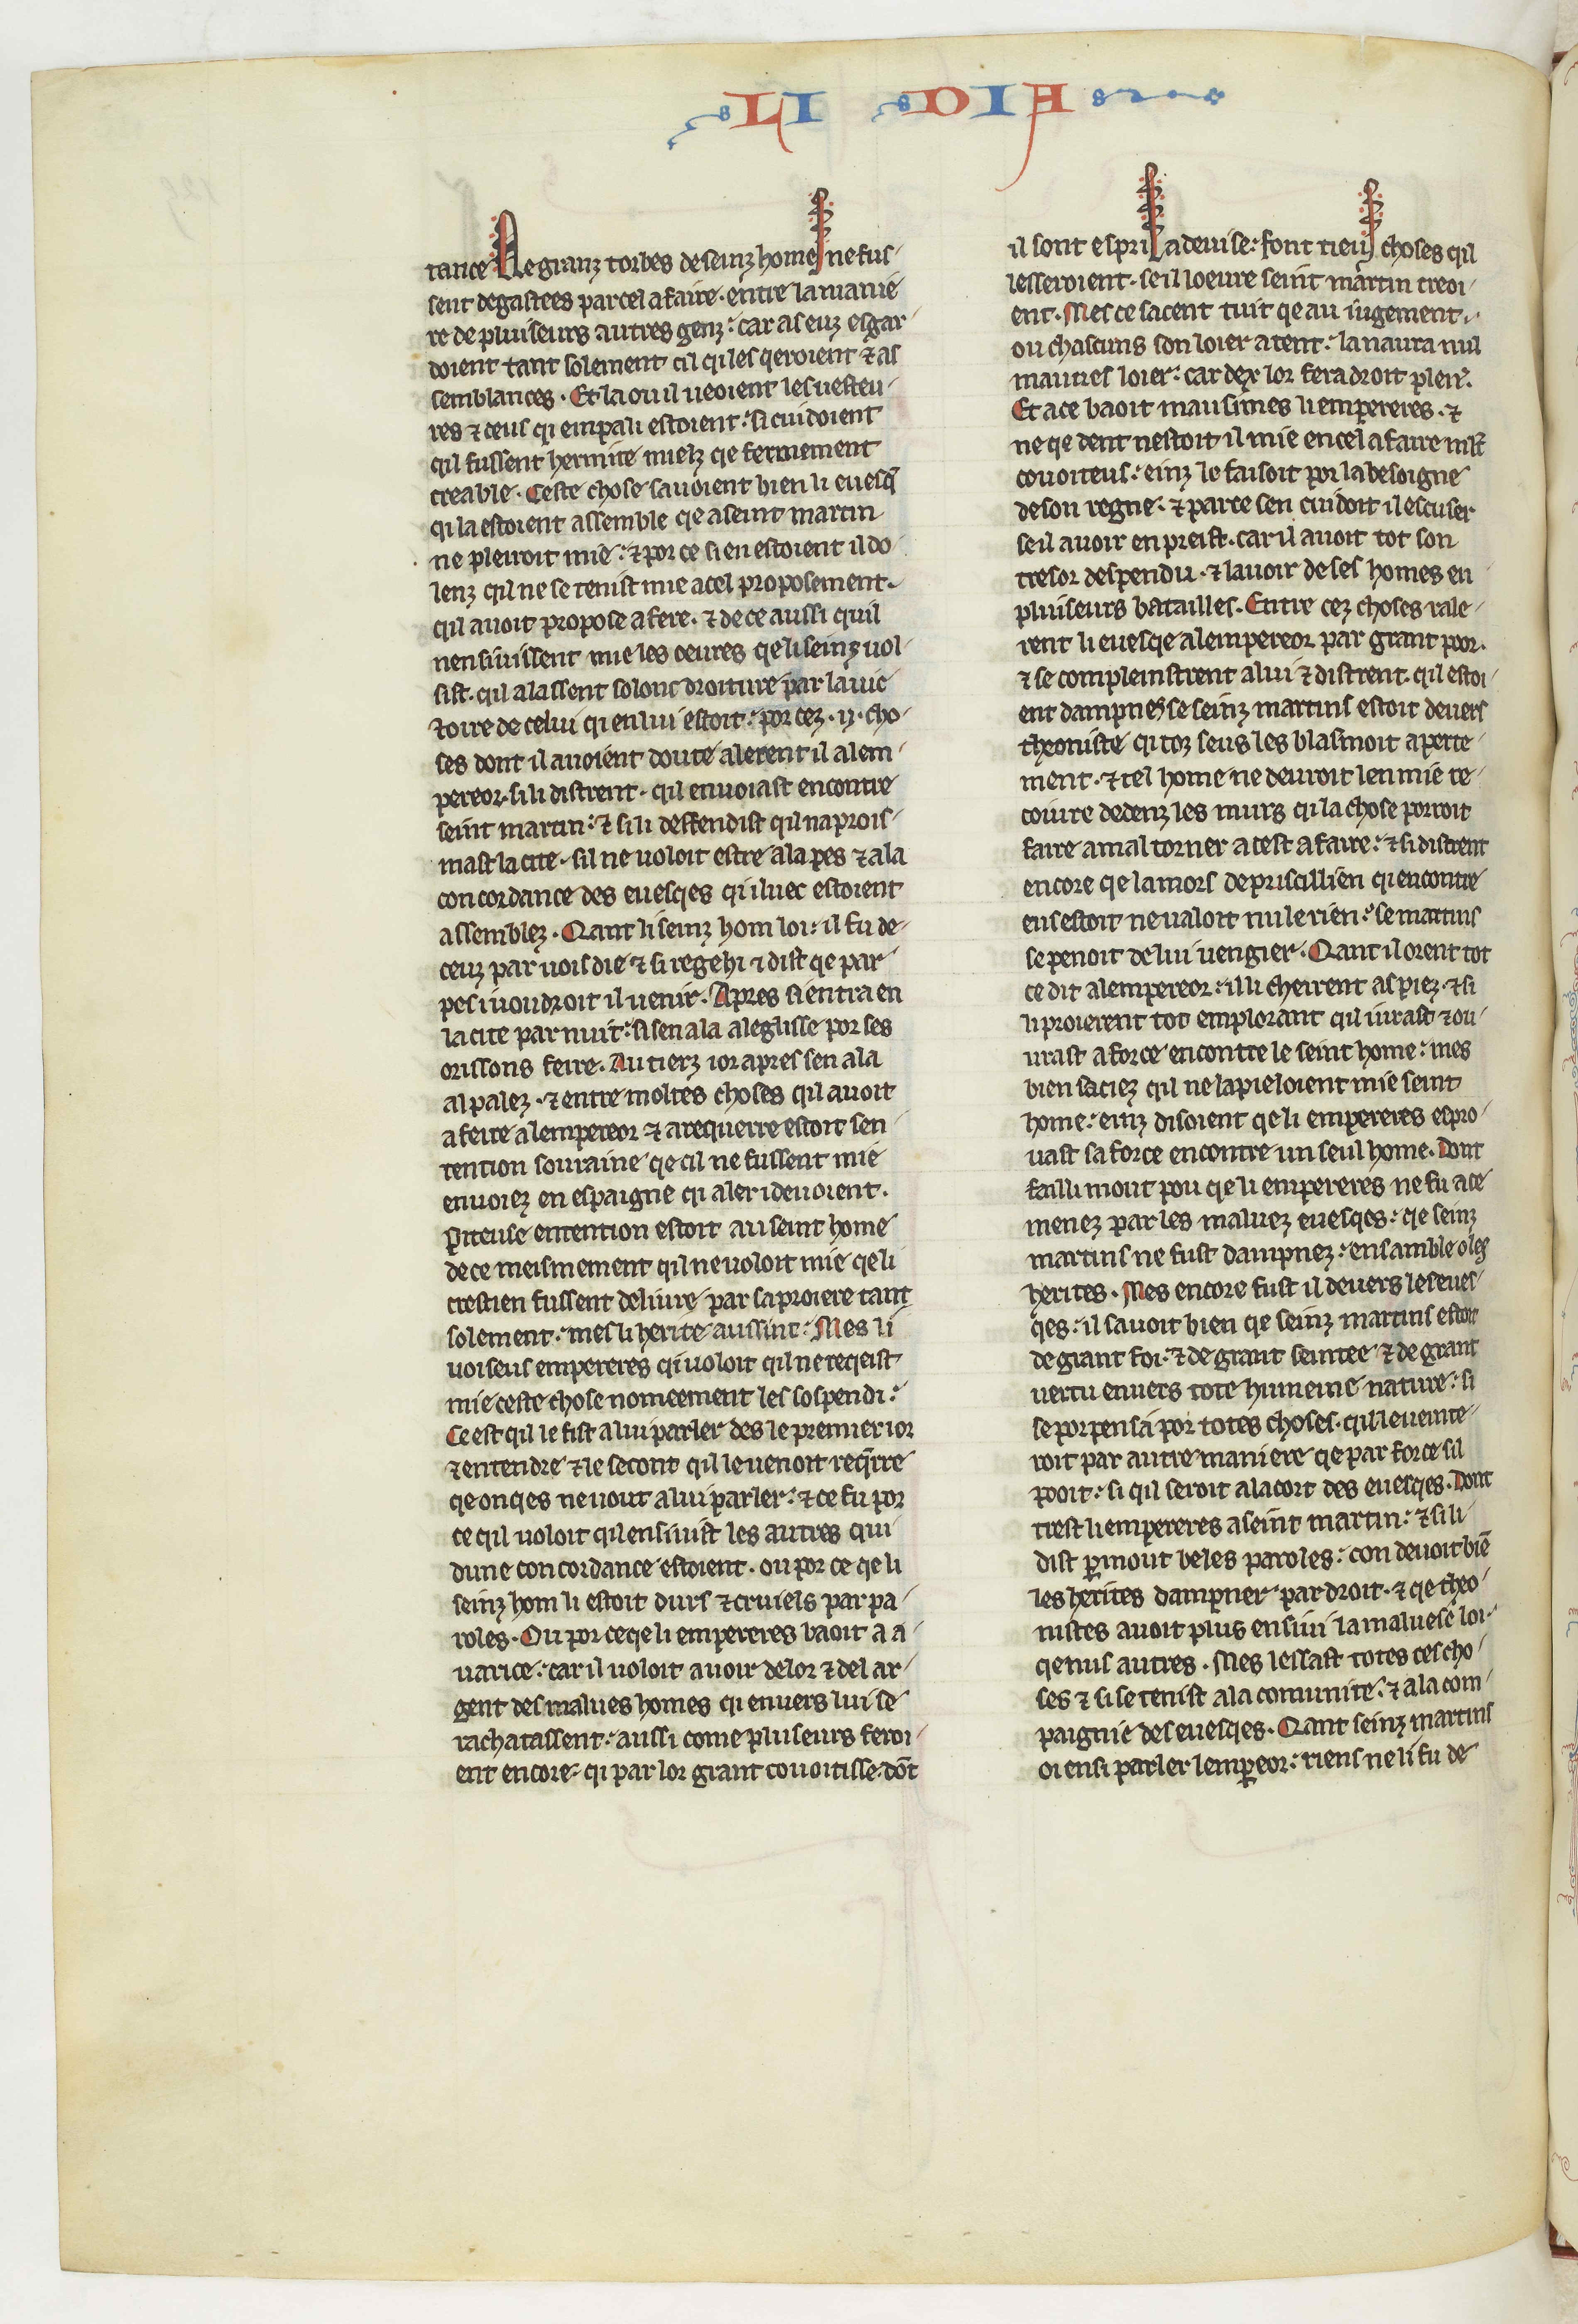 LI DIA
tance Ne granz torbes de seinz homes ne fus
sent degastees par cel afaire. entre la manie
re de pluiseurs autres genz: car as euz esgar
doient tant solement cil qi les qeroient ⁊ as
semblances. Et la ou il ueoient les uesteu
res ⁊ ceus qi empali estoient: si cuidoient
qil fussent hermite mielz qe fermement
creable. Ceste chose sauoient bien li euesq̃
qi la estoient assemble qe a seint martin
ne pleuroit mie: ⁊ por ce si en estoient il do
lenz qil ne se tenist mie a cel proposement.
qil auoit propose a fere. ⁊ de ce aussi quil
nensiuissent mie les oeures qe li seinz uol
sist. qil alassent solonc droiture par la uic
toire de celui qi en lui estoit: por cez .ij. cho
ses dont il auoient doute alerent il a lem
pereor. si li distrent. qil enuoiast encontre
seint martin: ⁊ si li deffendist qil naprois
mast la cite. sil ne uoloit estre a la pes ⁊ a la
concordance des euesqes qi iluec estoient
assemblez. Qant li seinz hom loi: il fu de
ceuz par uoisdie ⁊ si regehi ⁊ dist qe par
pes i uoudroit il uenir. Apres si entra en
la cite par nuit: si sen ala a leglisse por ses
orissons feire. Au tierz ior apres sen ala
al palez. ⁊ entre moltes choses qil auoit
a feire a lempereor ⁊ a requerre estoit sen
tention souraine qe cil ne fussent mie
enuoiez en espaigne qi aler i deuoient.
Piteuse entention estoit au seint home
de ce meismement qil ne uoloit mie qe li
crestien fussent deliure par sa proiere tant
solement: mes li herite aussint: Mes li
uoiseus empereres qi uoloit qil ne reqeist
mie ceste chose nomeement les sospendi:
Ce est qil le fist a lui parler des le premier ior
⁊ entendre ⁊ le secont qil le uenoit req̃rre
qe onqes ne uout a lui parler: ⁊ ce fu por
ce qil uoloit qil ensiuist les autres qui
dune concordance estoient. ou por ce qe li
seinz hom li estoit durs ⁊ cruiels par pa
roles. Ou por ce qe li empereres baoit a a
uarice: car il uoloit auoir de lor ⁊ del ar
gent des malues homes qi enuers lui se
rachatassent: aussi come pluiseurs feroi
ent encore: qi par lor grant couoitisse. dõt
il sont espris a deuise: font tieus choses qil
lesseroient. se il loeure seint martin creoi
ent. Mes ce sacent tuit qe au iugement.
ou chascuns son loier atent: la naura nul
mauues loier: car dex lor fera droit plen.
Et a ce baoit mausimes li empereres. ⁊
ne qe dent nestoit il mie en cel afaire
couoiteus: einz le faisoit por la besoigne
de son regne: ⁊ par ce sen cuidoit il escuser
se il auoir en preist. car il auoit tot son
tresor despendu. ⁊ lauoir de ses homes en
pluiseurs batailles. Entre cez choses rale
rent li euesqe a lempereor par grant poor.
⁊ se compleinstrent a lui ⁊ distrent. qil estoi
ent dampnes se seinz martins estoit deuers
theoniste qi toz seus les blasmoit aperte
ment. ⁊ tel home ne deuroit len mie re
coiure dedenz les murs qi la chose porroit
faire a mal torner a cest afaire: ⁊ si distrent
encore qe la mors de priscillien qi encontre
eus estoit ne ualoit nule rien: se martins
se penoit de lui uengier. Qant il orent tot
ce dit a lempereor: il li cheirent as piez. ⁊ si
li proierent tot emplorant qil iurast ⁊ ou
urast a force encontre le seint home: mes
bien saciez qil ne lapieloient mie seint
home: einz disoient qe li empereres espro
uast sa force encontre un seul home. Dont
failli mout pou qe li empereres ne fu a ce
menez par les maluez euesqes: qe seinz
martins ne fust dampnez: ensamble o les
herites. Mes encore fust il deuers les eues
qes: il sauoit bien qe seinz martins estoit
de grant foi: ⁊ de grant seintee ⁊ de grant
uertu enuers tote humeine nature: si
se porpensa por totes choses. qil le ueinte
roit par autre maniere qe par force sil
pooit: si qil seroit a la cort des euesqes. Dont
trest li empereres a seint martin: ⁊ si li
dist p mout beles paroles: con deuoit biẽ
les herites dampner par droit. ⁊ qe theo
nistes auoit plus ensiui la maluese loi.
qe nus autres. Mes lessast totes ces cho
ses ⁊ si se tenist a la comunite: ⁊ a la com
paignie des euesqes. Qant seinz martins
oi ensi parler lempeor: riens ne li fu de